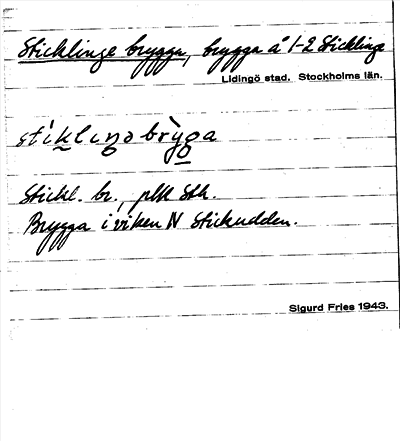 Sticklinge brygga, brygga å 1-2 Sticklinge
Lidingö stad. Stockholms län.
stiklıŋəbryga
Stickl. br., plk Sth.
Brygga i viken N Stickudden.
Sigurd Fries 1943.